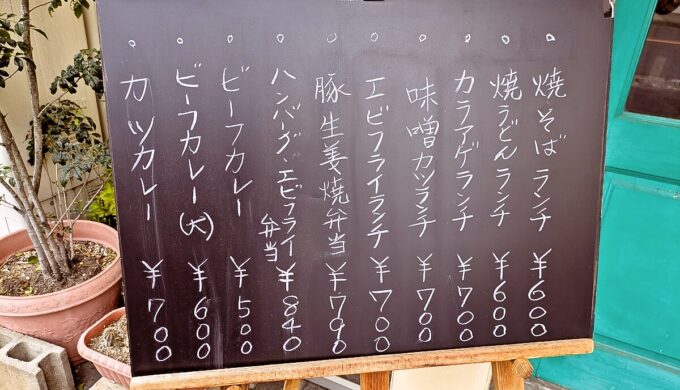 焼そばランチ ¥600
焼うどんランチ ¥600
カラアゲランチ ¥700
味噌カツランチ ¥700
エビフライランチ ¥700
豚生姜焼弁当 ¥700
ハンバーグ、エビフライ弁当 ¥840
ビーフカレー ¥500
ビーフカレー(大) ¥600
カツカレー ¥700